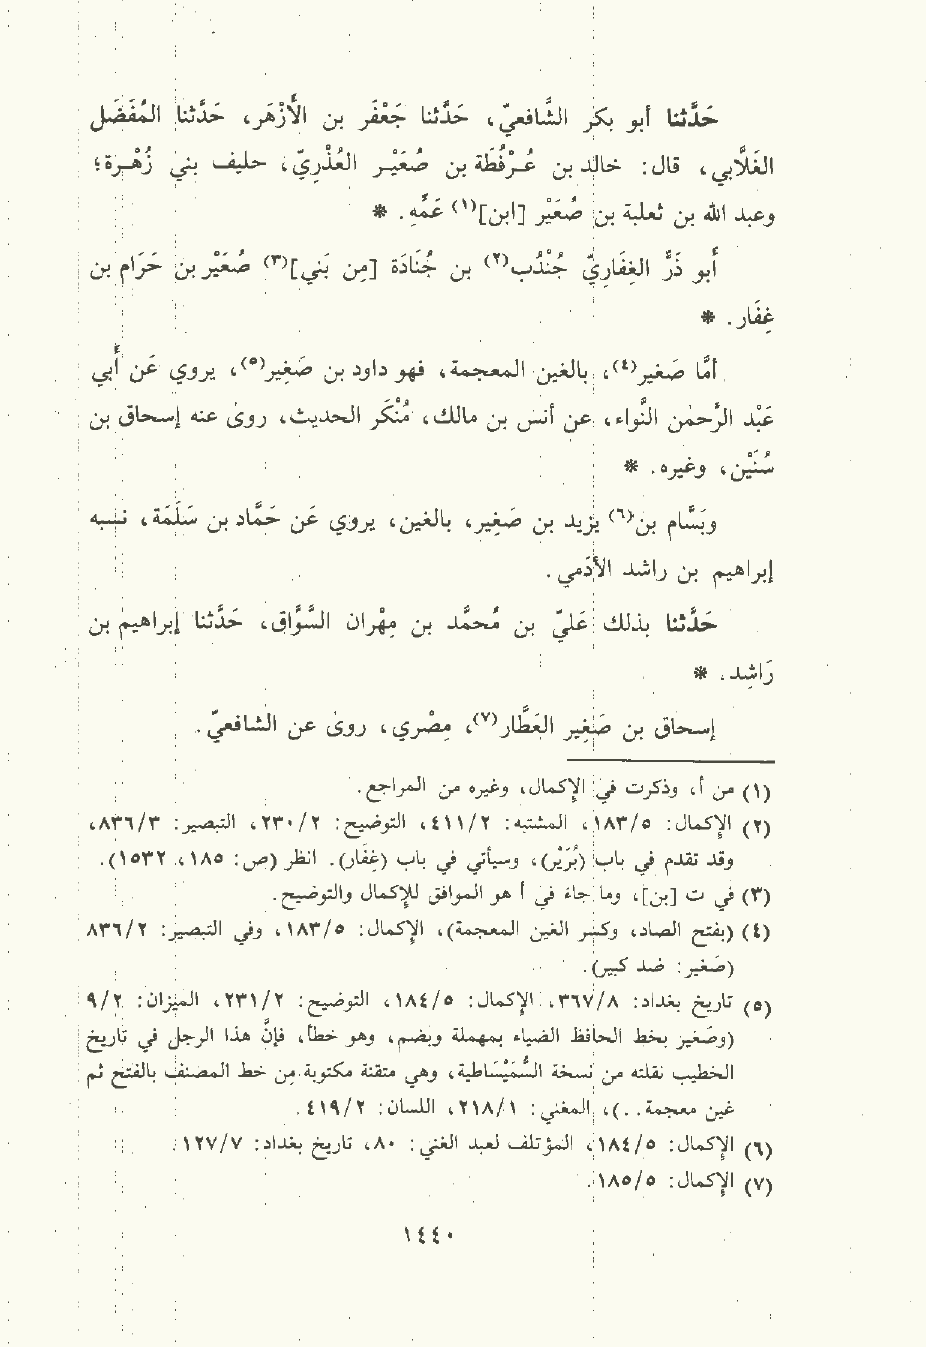 حَدَّثنا أبو بكر الشَّافعيّ، حَدَّثنا جَعْفَر بن الأَزْهَر، حَدَّثنا المُفَضل
الغَلَّابي، قال: خالد بن عُـرْفُطَة بن صُعَيْـر العُذْرِيّ، حليف بني زُهْـرة؛
وعبد الله بن ثعلبة بن صُعَيْر [ابن](١) عَمِّه. *
أبو ذَرٍّ الغِفَارِيّ جُنْدُب(٢) بن جُنَادَة [مِن بَني](٣) صُعَيْر بن حَرَام بن
غِفَار. *
أمَّا صَغير(٤)، بالغين المعجمة، فهو داود بن صَغِير(٥)، يروي عَن أَبي
عَبْد الرَّحمٰن النَّواء، عن أنس بن مالك، مُنْكَر الحديث، روىٰ عنه إسحاق بن
سُنَيْن، وغيره. *
وبَسَّام بن(٦) يزيد بن صَغِير، بالغين، يروي عَن حَمَّاد بن سَلَمَة، نسبه
إبراهيم بن راشد الأَدَمي.
حَدَّثنا بذلك عَليّ بن مُحمَّد بن مِهْران السَّوَّاق، حَدَّثنا إبراهيم بن
رَاشِد. *
إسحاق بن صَغِير العَطَّار(٧)، مِصْري، روىٰ عن الشافعيّ.
(١) من أ، وذكرت في الإكمال، وغيره من المراجع.
(٢) الإكمال: ١٨٣/٥، المشتبه: ٤١١/٢، التوضيح: ٢٣٠/٢، التبصير: ٨٣٦/٣،
وقد تقدم في باب (بُرَيْر)، وسيأتي في باب (غِفَار). انظر (ص: ١٨٥، ١٥٣٢).
(٣) في ت [بن]، وما جاء في أ هو الموافق للإكمال والتوضيح.
(٤) (بفتح الصاد، وكسر الغين المعجمة)، الإكمال: ١٨٣/٥، وفي التبصير: ٨٣٦/٢
(صَغير: ضد كبير).
(٥) تاريخ بغداد: ٣٦٧/٨، الإكمال: ١٨٤/٥، التوضيح: ٢٣١/٢، الميزان: ٩/٢
(وصَغير بخط الحافظ الضياء بمهملة وبضم، وهو خطأ، فإنَّ هذا الرجل في تاريخ
الخطيب نقلته من نسخة السُّمَيْسَاطية، وهي متقنة مكتوبة مِن خط المصنف بالفتح ثم
غين معجمة..)، المغني: ٢١٨/١، اللسان: ٤١٩/٢.
(٦) الإكمال: ١٨٤/٥، المؤتلف لعبد الغني: ٨٠، تاريخ بغداد: ١٢٧/٧
(٧) الإكمال: ١٨٥/٥.
١٤٤٠